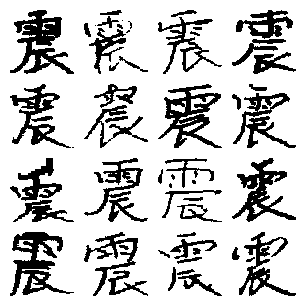 震震震震
震震震震
震震震震
震震震震